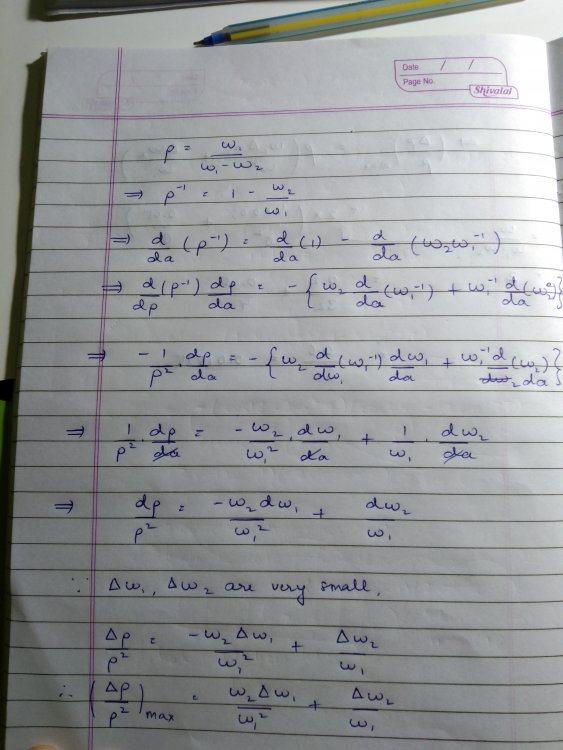 Date / /
Page No.
Shivalal
ρ = ω₁ / (ω₁ - ω₂)
⇒ ρ⁻¹ = 1 - ω₂/ω₁
⇒ d/da (ρ⁻¹) = d/da (1) - d/da (ω₂ω₁⁻¹)
⇒ d/dρ (ρ⁻¹) dρ/da = -{ω₂ d/da (ω₁⁻¹) + ω₁⁻¹ d/da (ω₂)}
⇒ -1/ρ² · dρ/da = -{ω₂ d/dω₁ (ω₁⁻¹) dω₁/da + ω₁⁻¹ d/da (ω₂)}
⇒ 1/ρ² · dρ/da = -ω₂/ω₁² · dω₁/da + 1/ω₁ · dω₂/da
⇒ dρ/ρ² = -ω₂dω₁/ω₁² + dω₂/ω₁
∵ Δω₁, Δω₂ are very small,
Δρ/ρ² = -ω₂Δω₁/ω₁² + Δω₂/ω₁
∴ (Δρ/ρ²)max = ω₂Δω₁/ω₁² + Δω₂/ω₁